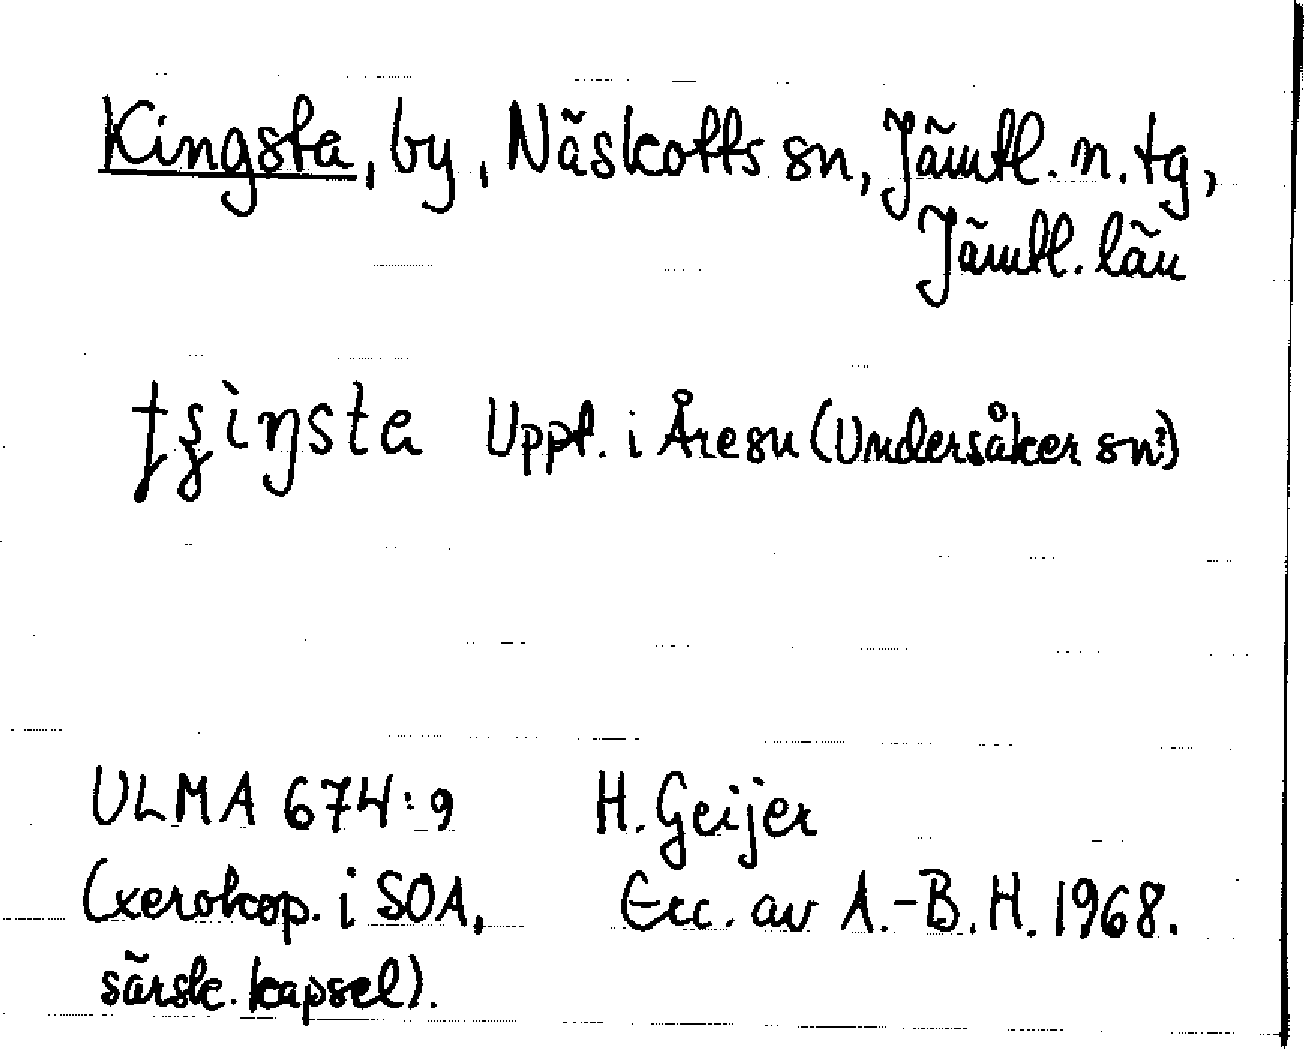 Kingsta, by, Näskotts sn, Jämtl. n. tg,
Jämtl. län
ƫʂìŋsta Uppt. i Åresn (Undersåker sn?)
ULMA 674:9 H. Geijer
(xerokop. i SOA, Exc. av A.-B. H. 1968.
särsk. kapsel).